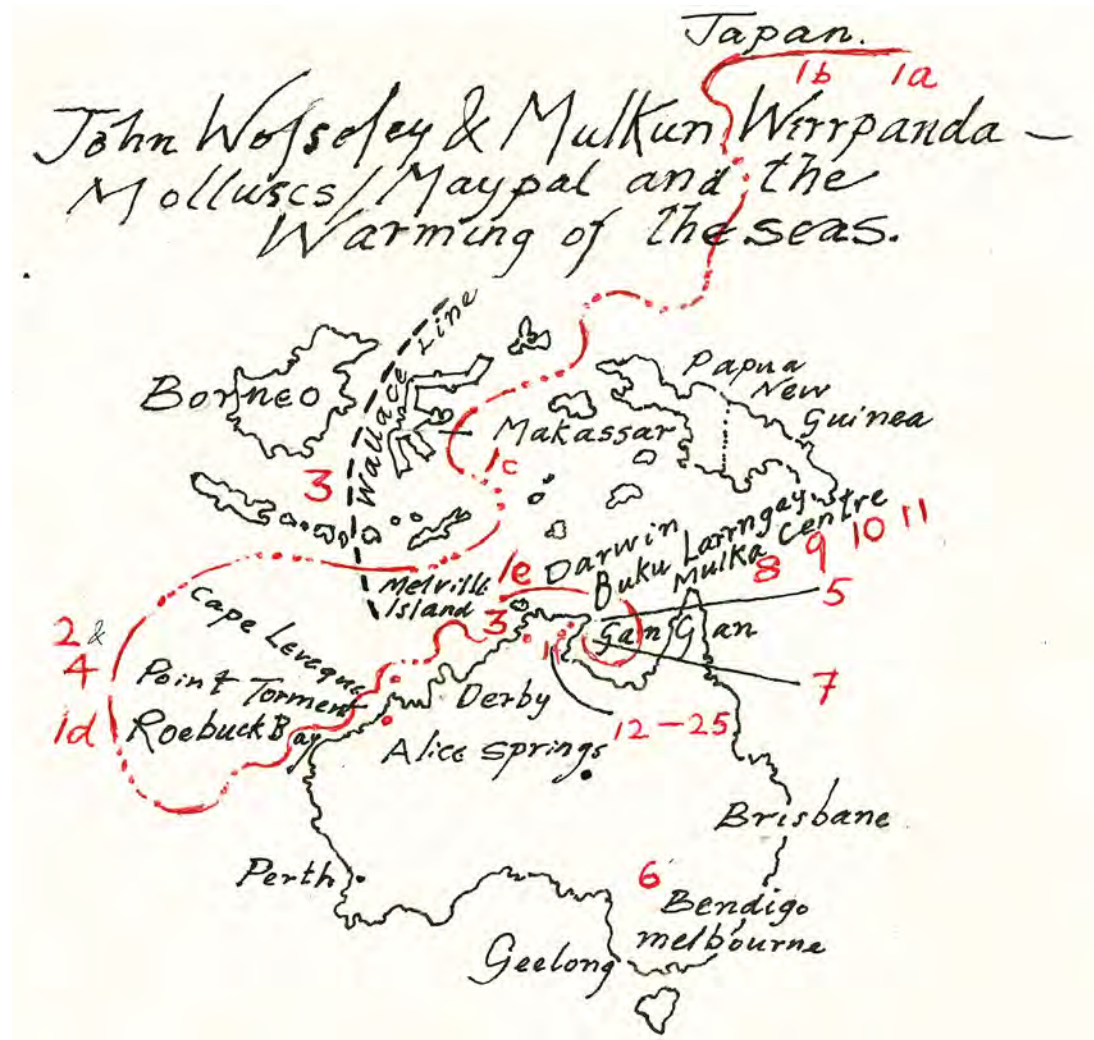 Japan.
1b 1a
John Wolseley & Mulkun Wirrpanda –
Molluscs/Maypal and the
Warming of the seas.
Wallace Line
Borneo
Papua
New
Guinea
Makassar
1c
3
Darwin
Buku Larrngay
Mulka Centre
8 9 10 11
1e
Melville
Island
3
5
Cape Leveque
Gan Gan
2 &
4
Point Torment
7
1d
Roebuck Bay
Derby
12 – 25
Alice Springs
Brisbane
Perth
6
Bendigo
melbourne
Geelong